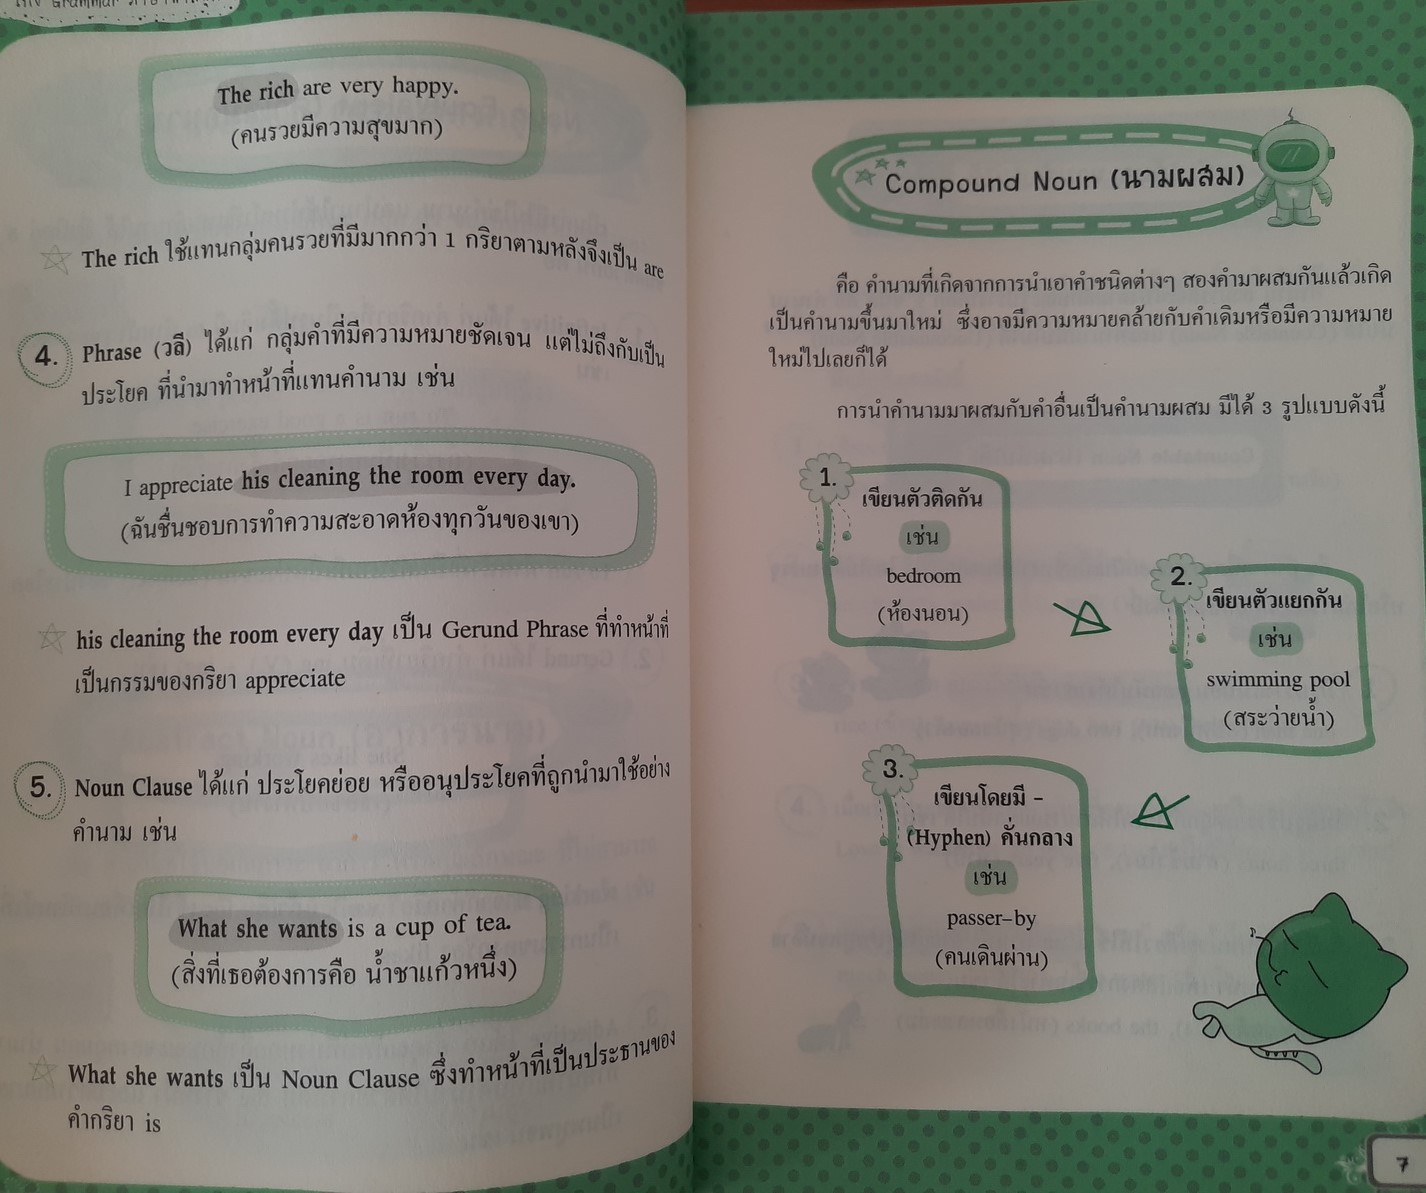 The rich are very happy.
(คนรวยมีความสุขมาก)
The rich ใช้แทนกลุ่มคนรวยที่มีมากกว่า 1 กริยาตามหลังจึงเป็น are
4.
Phrase (วลี) ได้แก่ กลุ่มคำที่มีความหมายชัดเจน แต่ไม่ถึงกับเป็น
ประโยค ที่นำมาทำหน้าที่แทนคำนาม เช่น
I appreciate his cleaning the room every day.
(ฉันชื่นชอบการทำความสะอาดห้องทุกวันของเขา)
his cleaning the room every day เป็น Gerund Phrase ที่ทำหน้าที่
เป็นกรรมของกริยา appreciate
5.
Noun Clause ได้แก่ ประโยคย่อย หรืออนุประโยคที่ถูกนำมาใช้อย่าง
คำนาม เช่น
What she wants is a cup of tea.
(สิ่งที่เธอต้องการคือ น้ำชาแก้วหนึ่ง)
What she wants เป็น Noun Clause ซึ่งทำหน้าที่เป็นประธานของ
คำกริยา is
Compound Noun (นามผสม)
คือ คำนามที่เกิดจากการนำเอาคำชนิดต่างๆ สองคำมาผสมกันแล้วเกิด
เป็นคำนามขึ้นมาใหม่ ซึ่งอาจมีความหมายคล้ายกับคำเดิมหรือมีความหมาย
ใหม่ไปเลยก็ได้
การนำคำนามมาผสมกับคำอื่นเป็นคำนามผสม มีได้ 3 รูปแบบดังนี้
1.
เขียนตัวติดกัน
เช่น
bedroom
(ห้องนอน)
2.
เขียนตัวแยกกัน
เช่น
swimming pool
(สระว่ายน้ำ)
3.
เขียนโดยมี -
(Hyphen) คั่นกลาง
เช่น
passer-by
(คนเดินผ่าน)
7